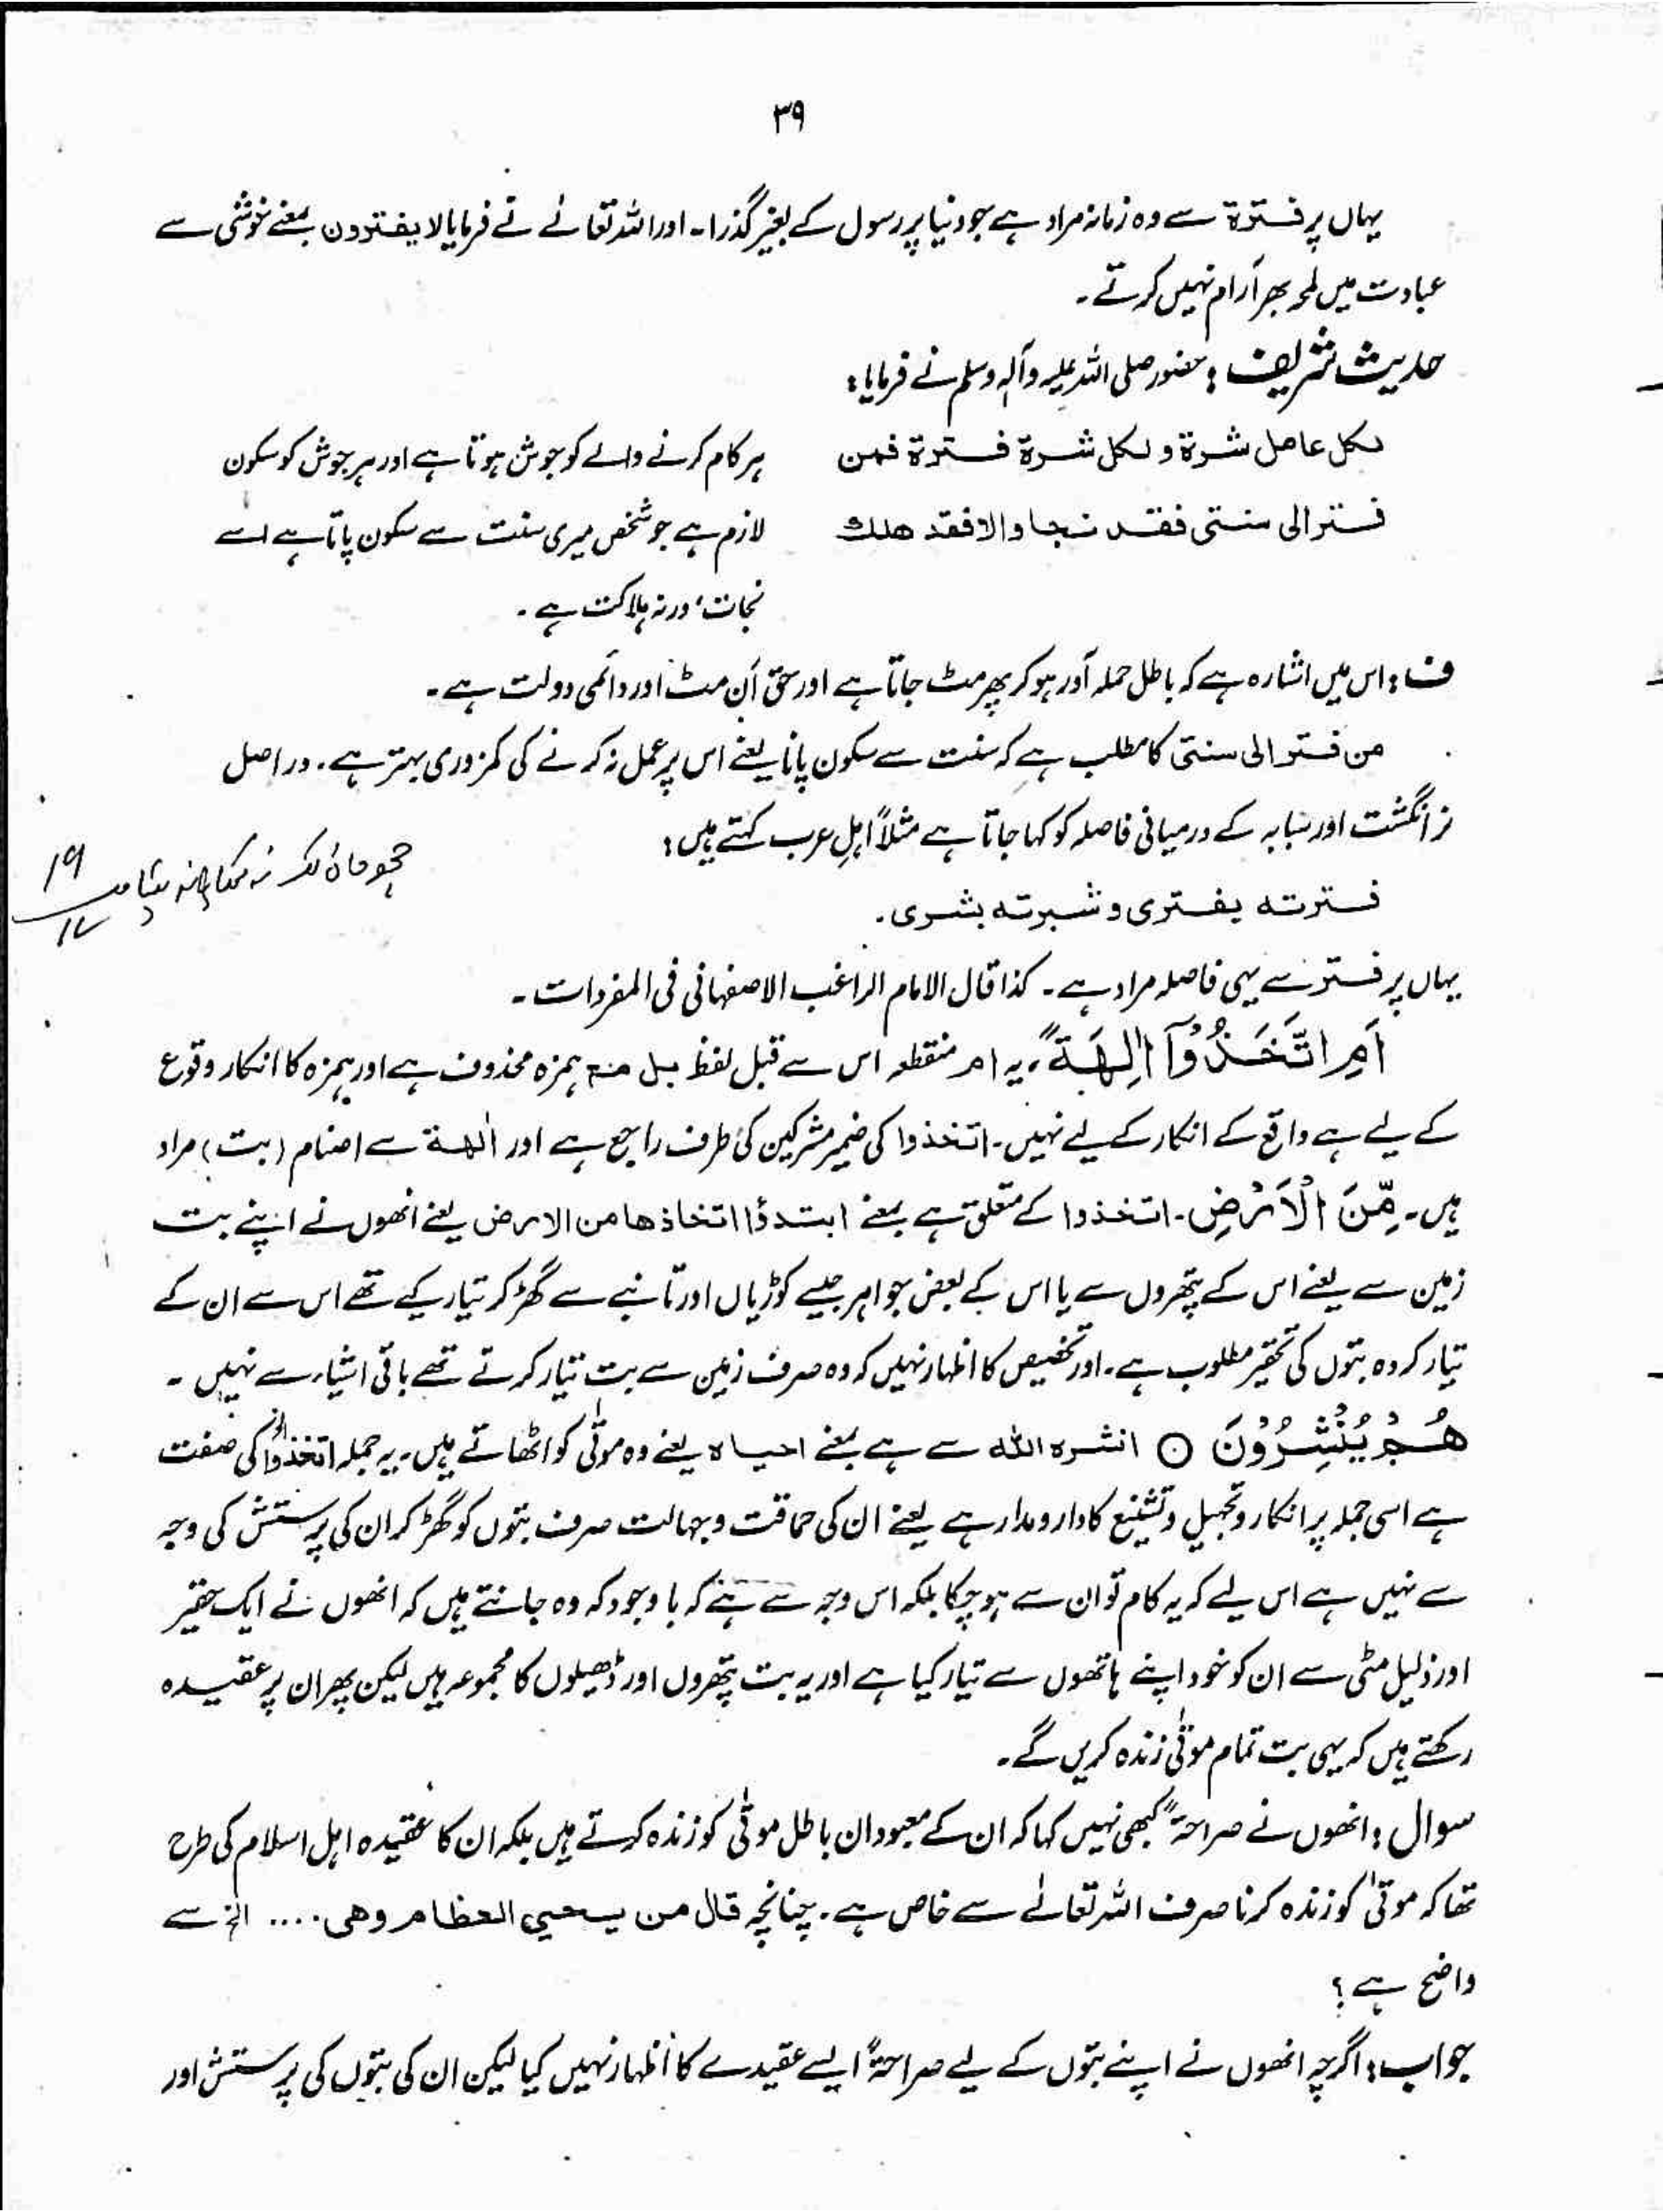 ۳۹
یہاں پر فترۃ سے وہ زمانہ مراد ہے جو دنیا پر رسول کے بغیر گذرا۔ اور اللہ تعالٰے نے فرمایا لا یفترون بمعنے خوشی سے
عبادت میں لمحہ بھر آرام نہیں کرتے۔
حدیث شریف : حضور صلی اللہ علیہ وآلہ وسلم نے فرمایا :
لکل عامل شرۃ و لکل شرۃ فترۃ فمن
فتر الی سنتی فقد نجا والا فقد ھلک
ہر کام کرنے والے کو جوش ہوتا ہے اور ہر جوش کو سکون
لازم ہے جو شخص میری سنت سے سکون پاتا ہے اسے
نجات، ورنہ ہلاکت ہے۔
ف : اس میں اشارہ ہے کہ باطل حملہ آور ہو کر پھر مٹ جاتا ہے اور حق اَن مٹ اور دائمی دولت ہے۔
من فتر الی سنتی کا مطلب ہے کہ سنت سے سکون پانا یعنے اس پر عمل نہ کرنے کی کمزوری بہتر ہے۔ دراصل
نر انگشت اور سبابہ کے درمیانی فاصلہ کو کہا جاتا ہے مثلاً اہلِ عرب کہتے ہیں :
۱۹
۱۷
فترتہ یفتری و شبرتہ بشری۔
یہاں پر فتر سے یہی فاصلہ مراد ہے۔ کذا قال الامام الراغب الاصفہانی فی المفردات۔
اَمِ اتَّخَذُوْٓا اٰلِهَةً، یہ ام منقطعہ اس سے قبل لفظ بل مع ہمزہ محذوف ہے اور ہمزہ کا انکار وقوع
کے لیے ہے واقع کے انکار کے لیے نہیں۔ اتخذوا کی ضمیر مشرکین کی طرف راجع ہے اور اٰلھۃ سے اصنام (بت) مراد
ہیں۔ مِّنَ الْاَرْضِ۔ اتخذوا کے متعلق ہے بمعنے ابتدؤا اتخاذھا من الارض یعنے انھوں نے اپنے بت
زمین سے یعنے اس کے پتھروں سے یا اس کے بعض جواہر جیسے کوڑیاں اور تانبے سے گھڑ کر تیار کیے تھے اس سے ان کے
تیار کردہ بتوں کی تحقیر مطلوب ہے۔ اور تخصیص کا اظہار نہیں کہ وہ صرف زمین سے بت تیار کرتے تھے باقی اشیاء سے نہیں۔
هُمْ يُنْشِرُوْنَ ○ انشرہ اللہ سے ہے بمعنے احیاہ یعنے وہ موتٰی کو اٹھاتے ہیں۔ یہ جملہ اتخذوا کی صفت
ہے اسی جملہ پر انکار و تجہیل و تشنیع کا دارومدار ہے یعنے ان کی حماقت و جہالت صرف بتوں کو گھڑ کر ان کی پرستش کی وجہ
سے نہیں ہے اس لیے کہ یہ کام تو ان سے ہو چکا بلکہ اس وجہ سے ہے کہ باوجودکہ وہ جانتے ہیں کہ انھوں نے ایک حقیر
اور ذلیل مٹی سے ان کو خود اپنے ہاتھوں سے تیار کیا ہے اور یہ بت پتھروں اور ڈھیلوں کا مجموعہ ہیں لیکن پھر ان پر عقیدہ
رکھتے ہیں کہ یہی بت تمام موتٰی زندہ کریں گے۔
سوال : انھوں نے صراحۃً کبھی نہیں کہا کہ ان کے معبودان باطل موتٰی کو زندہ کرتے ہیں بلکہ ان کا عقیدہ اہل اسلام کی طرح
تھا کہ موتٰی کو زندہ کرنا صرف اللہ تعالٰے سے خاص ہے۔ چنانچہ قال من یحیی العظام وھی .... الخ سے
واضح ہے ؟
جواب : اگرچہ انھوں نے اپنے بتوں کے لیے صراحۃً ایسے عقیدے کا اظہار نہیں کیا لیکن ان کی بتوں کی پرستش اور